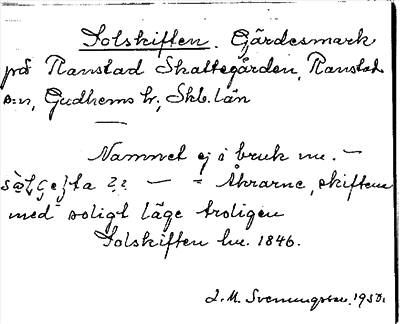 Solskiften. Gärdesmark
på Ranstad Skattegården, Ranstad
s:n, Gudhems hr; Skb. län
—
Namnet ej i bruk nu. —
— = Åkrarne, skiftena
med soligt läge troligen
Solskiften lm. 1846.
J. M. Svenungsson, 1950.